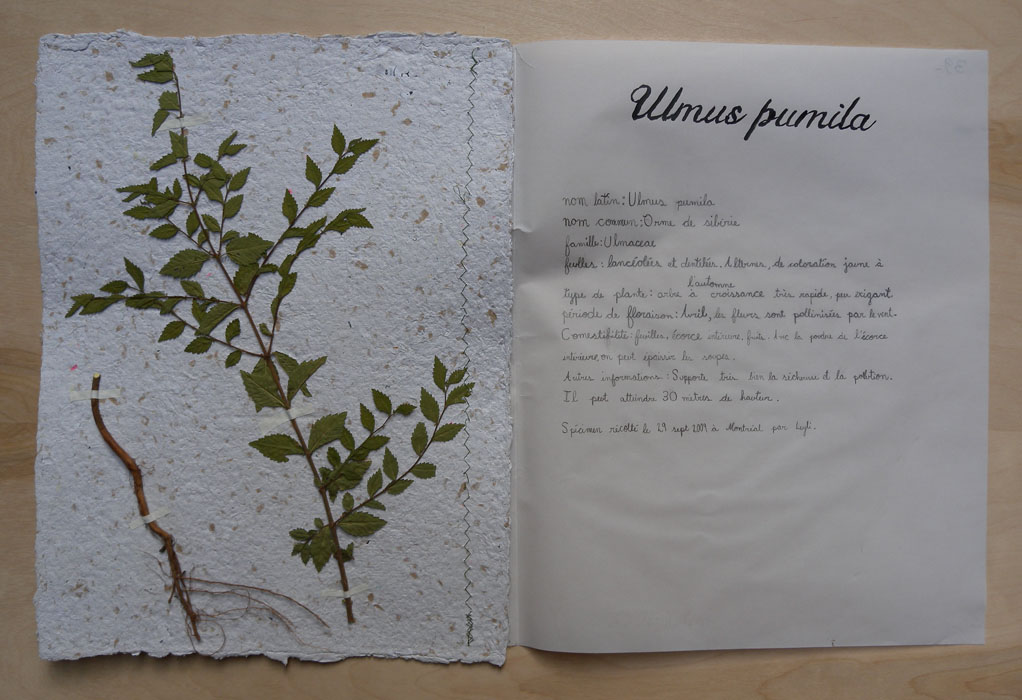 Ulmus pumila
nom latin : Ulmus pumila
nom commun : Orme de sibérie
famille : Ulmaceae
feuilles : lancéolées et dentelées. Alternes, de coloration jaune à
l'automne
type de plante : arbre à croissance très rapide, peu exigant
période de floraison : Avril, les fleurs sont pollinisées par le vent.
Comestibilité : feuilles, écorce intérieure, fruits. Avec la poudre de l'écorce
intérieure, on peut épaissir les soupes.
Autres informations : Supporte très bien la sécheresse et la pollution.
Il peut atteindre 30 mètres de hauteur.
Spécimen récolté le 29 sept 2009 à Montréal par